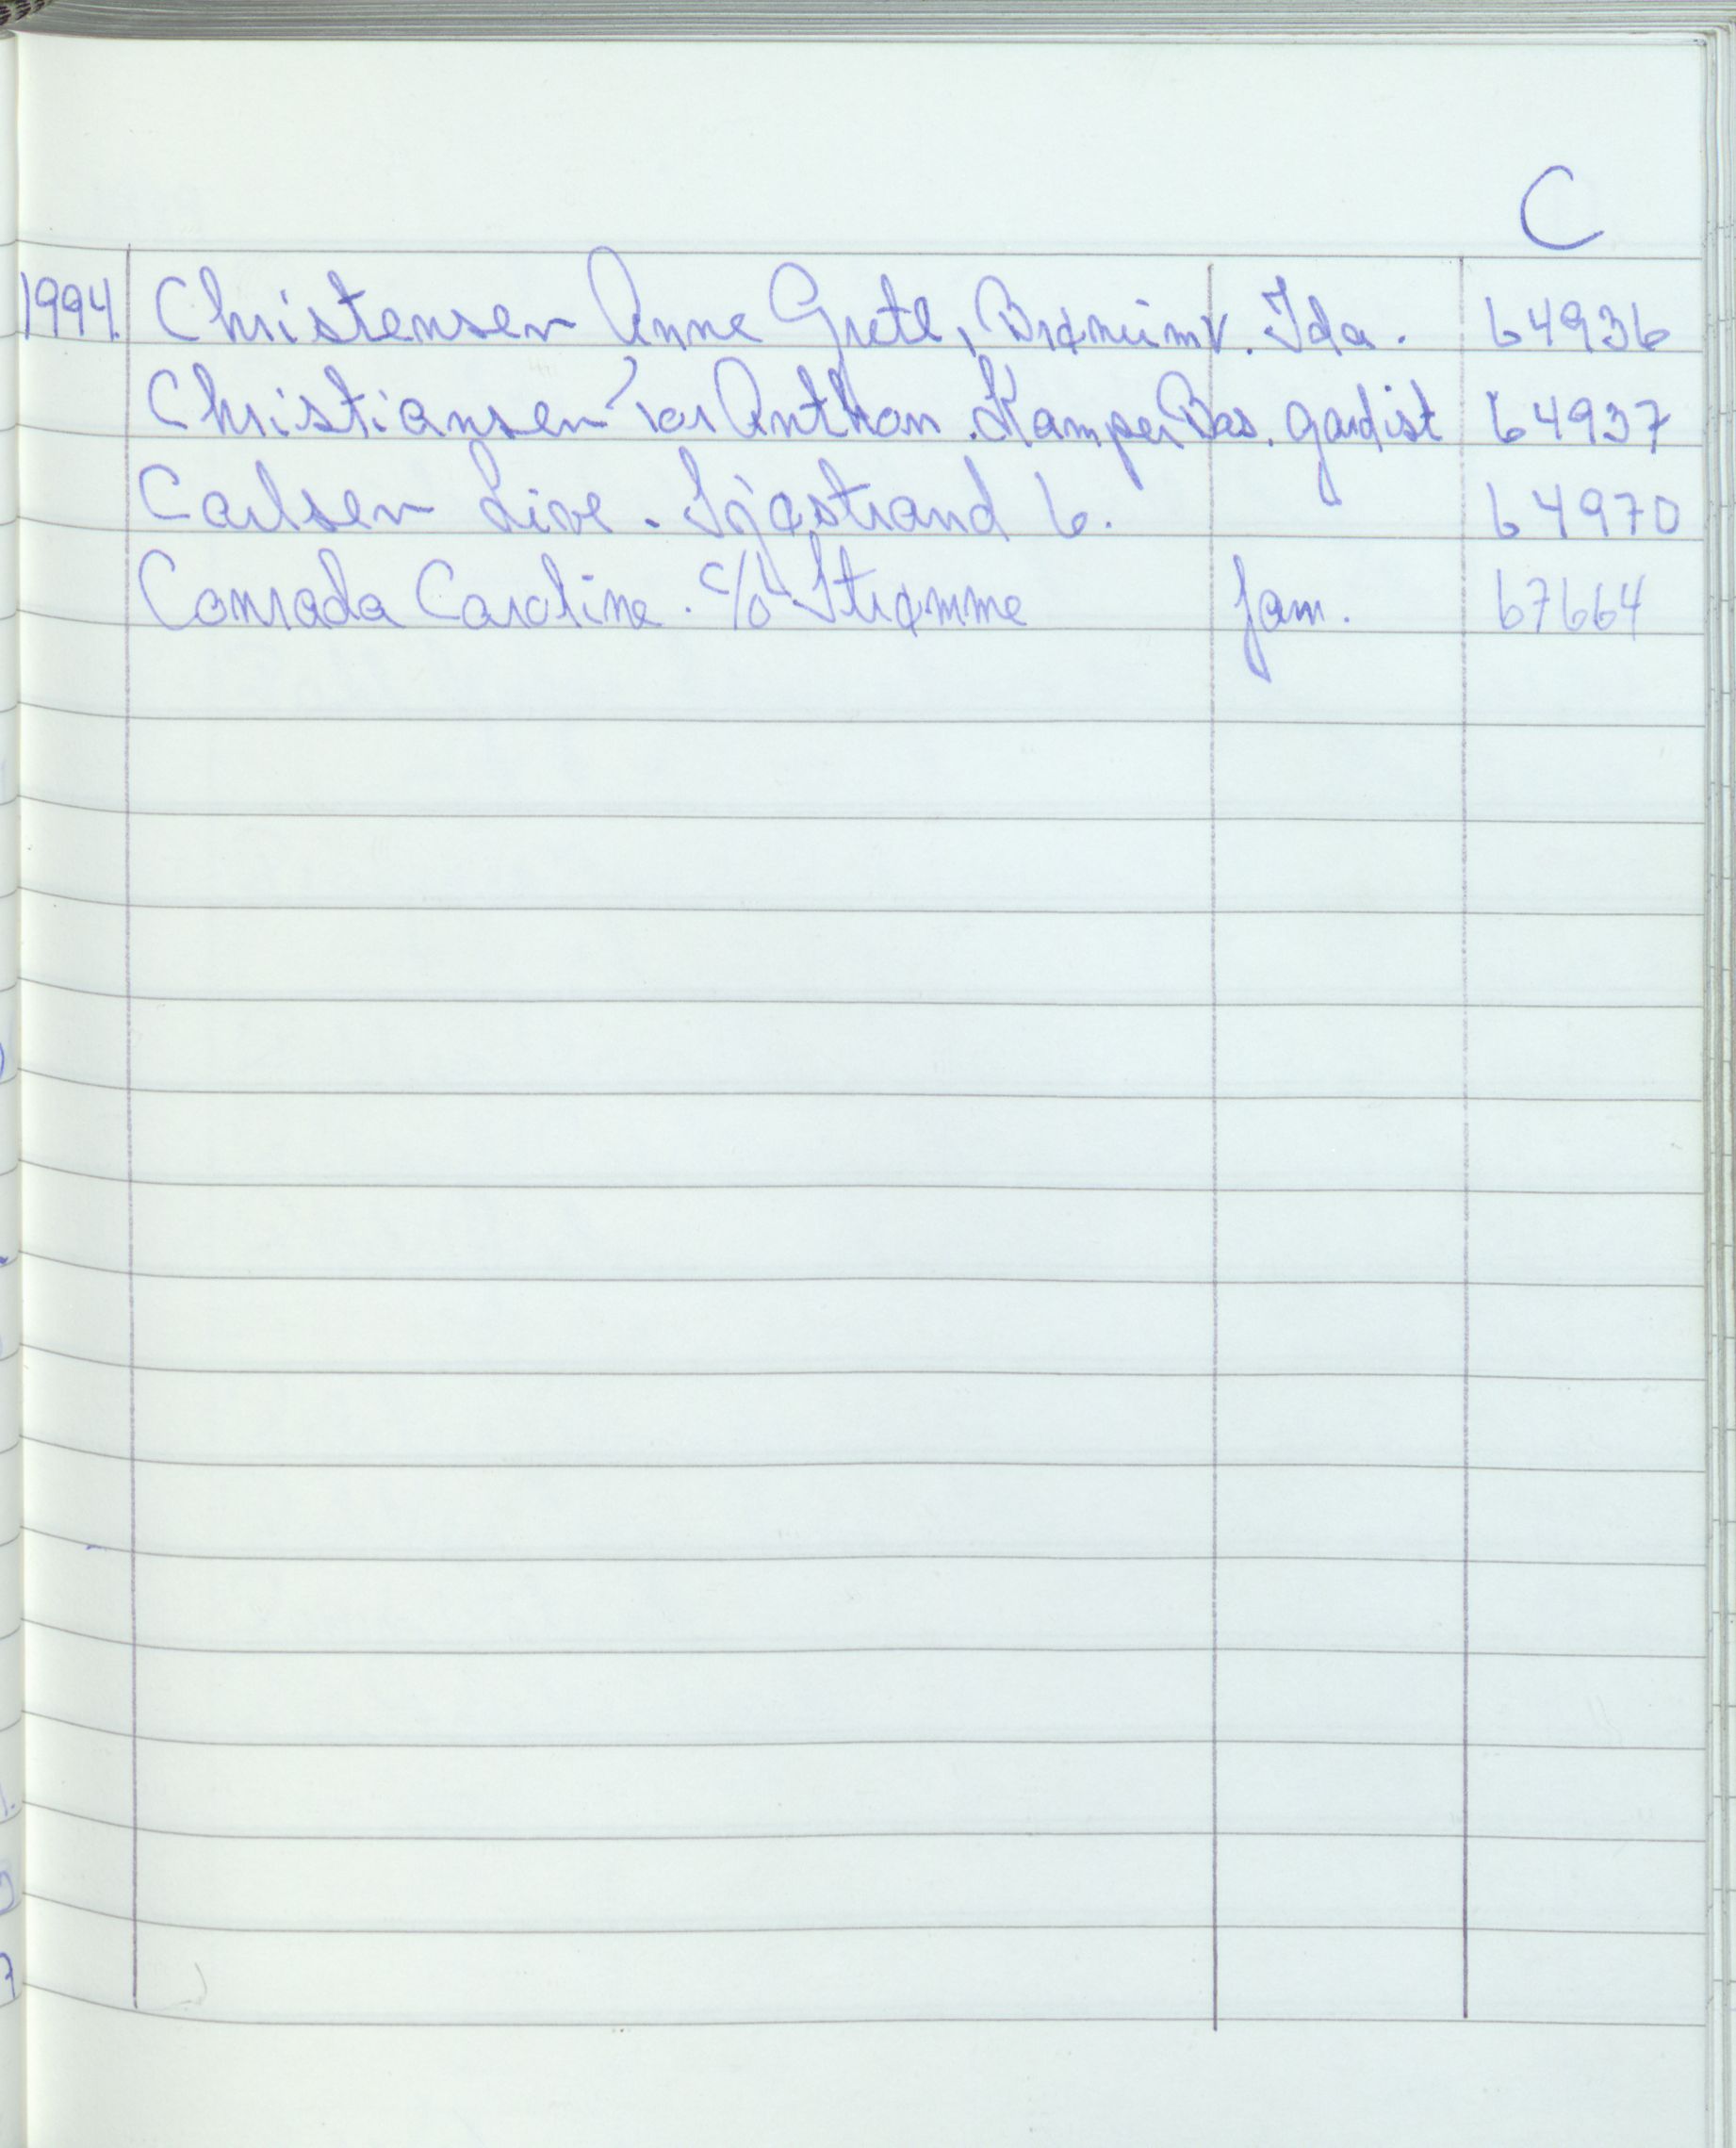 C
1994. Christensen Anne Grete, Brøneimv. Ida. 64936
Christiansen Tor Anthon. Kamper Bas. gardist 64937
Carlsen Live. Sjøstrand 6. 64970
Conrada Caroline. c/o Strømme Jan. 67664